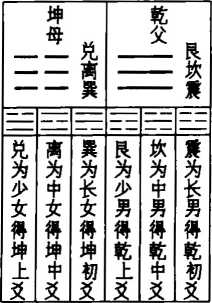 乾父
艮坎震
坤母
兑离巽
震为长男得乾初爻
坎为中男得乾中爻
艮为少男得乾上爻
巽为长女得坤初爻
离为中女得坤中爻
兑为少女得坤上爻